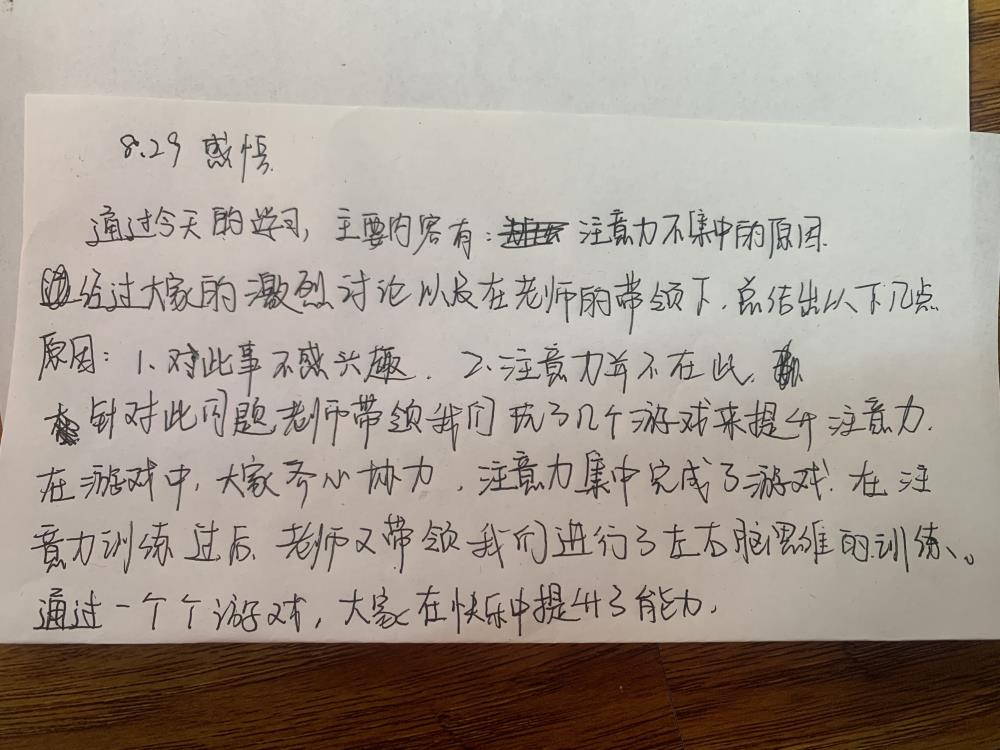 8.29 感悟
通过今天的学习, 主要内容有: 注意力不集中的原因.
经过大家的激烈讨论以及在老师的带领下, 总结出以下几点
原因: 1. 对此事不感兴趣. 2. 注意力并不在此.
针对此问题, 老师带领我们玩了几个游戏来提升注意力.
在游戏中, 大家齐心协力, 注意力集中完成了游戏. 在注
意力训练过后, 老师又带领我们进行了左右脑思维的训练、。
通过一个个游戏, 大家在快乐中提升了能力.